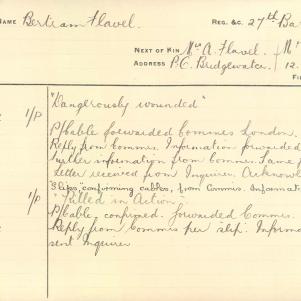 NAME Bertram Flavel. REG. &C. 27th Ba
NEXT OF KIN Mrs A. Flavel.
ADDRESS P.O. Bridgewater. 12.
FI
1/P "Dangerously wounded"
P/Cable forwarded Commes London.
Reply from Commis. Information forwarded
Further information from Commis. Same
Letter received from Inquirer. Acknowl
"Slips" confirming cables, from Commis. Informat
1/P "Killed in Action".
P/Cable confirmed. Forwarded Commis.
Reply from Commis per slip. Informa
sent Inquirer